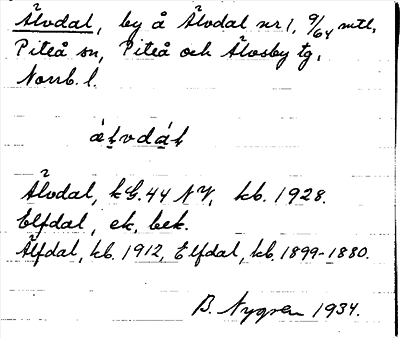 Älvdal, by å Älvdal nr 1, 9/64 mtl,
Piteå sn, Piteå och Älvsby tg,
Norrb. l.
Älvdal, kG. 44 NV, kb. 1928.
Elfdal, ek. bek.
Älfdal, kb. 1912, Elfdal, kb. 1899-1880.
B. Nygren 1934.